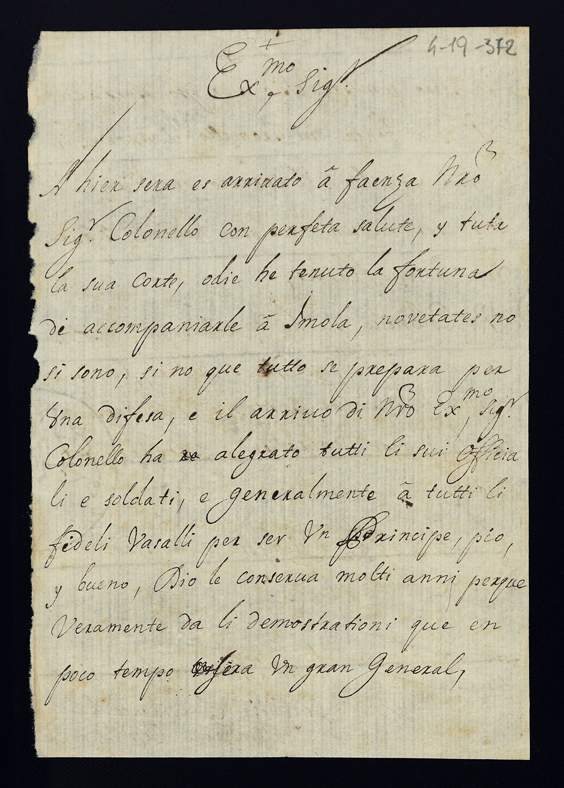 4-19-372
Ex.mo Sigr.
A hier sera es arrivato â faenza Nrõ
Sigr. Colonello con perfeta salute, y tuta
la sua corte, odie he tenuto la fortuna
de accompaniarle â Imola, novetates no
si sono, si no que tutto se prepara per
Una difesa, e il arrivo di Nrõ Ex.mo Sigr.
Colonello ha alegrato tutti li sui officia
li e soldati, e generalmente â tutti li
fideli Vasalli per ser Un Principe, pio,
y bueno, Dio le conserva molti anni perque
Veramente da li demostrationi que en
poco tempo sera Un gran General,